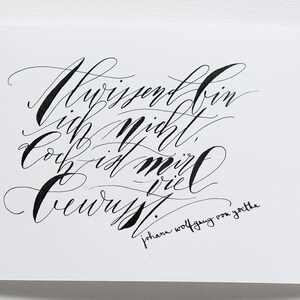 Alwissend bin
ich nicht,
Doch ist mir
viel
bewusst.
johann wolfgang von goethe